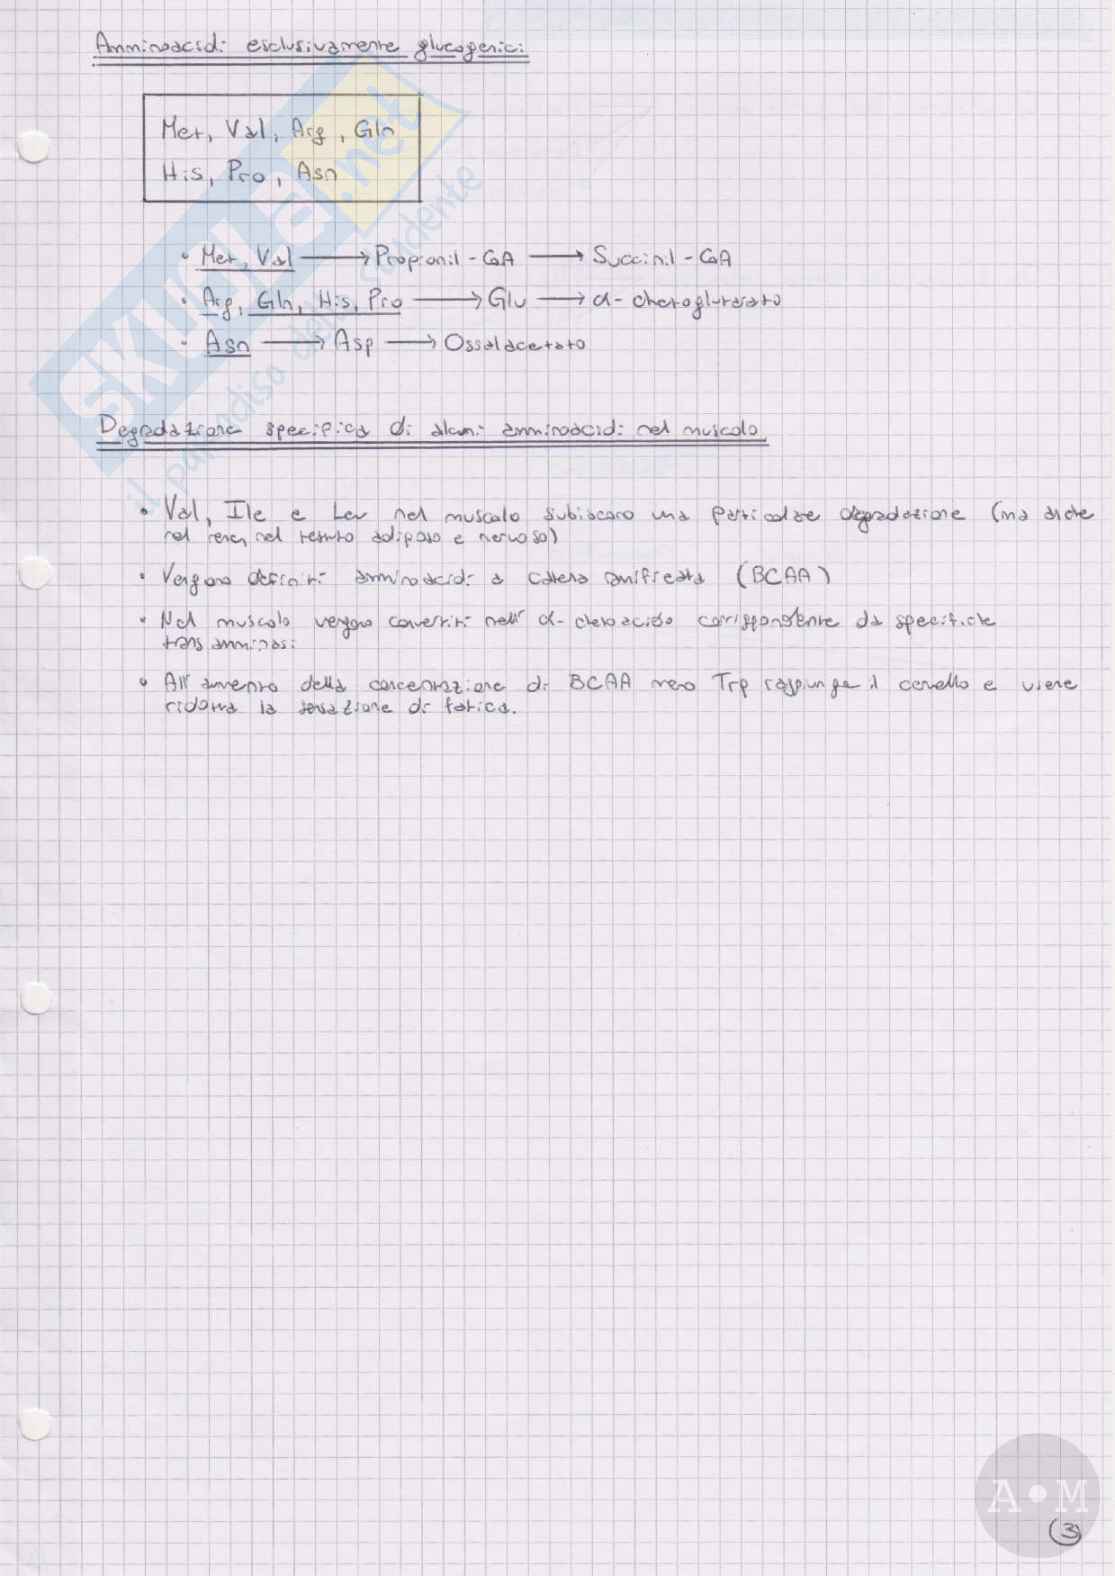 Amminoacidi esclusivamente glucogenici:
Met, Val, Arg, Gln
His, Pro, Asn
• Met, Val → Propionil-CoA → Succinil-CoA
• Arg, Gln, His, Pro → Glu → α-chetoglutarato
• Asn → Asp → Ossalacetato
Degradazione specifica di alcuni amminoacidi nel muscolo
• Val, Ile e Leu nel muscolo subiscono una particolare degradazione (ma anche
nel rene, nel tessuto adiposo e nervoso)
• Vengono definiti amminoacidi a catena ramificata (BCAA)
• Nel muscolo vengono convertiti nell' α-chetoacido corrispondente da specifiche
transamminasi
• All'aumento della concentrazione di BCAA meno Trp raggiunge il cervello e viene
ridotta la sensazione di fatica.
SKUOLA.net
il paradiso dello studente
A•M
3